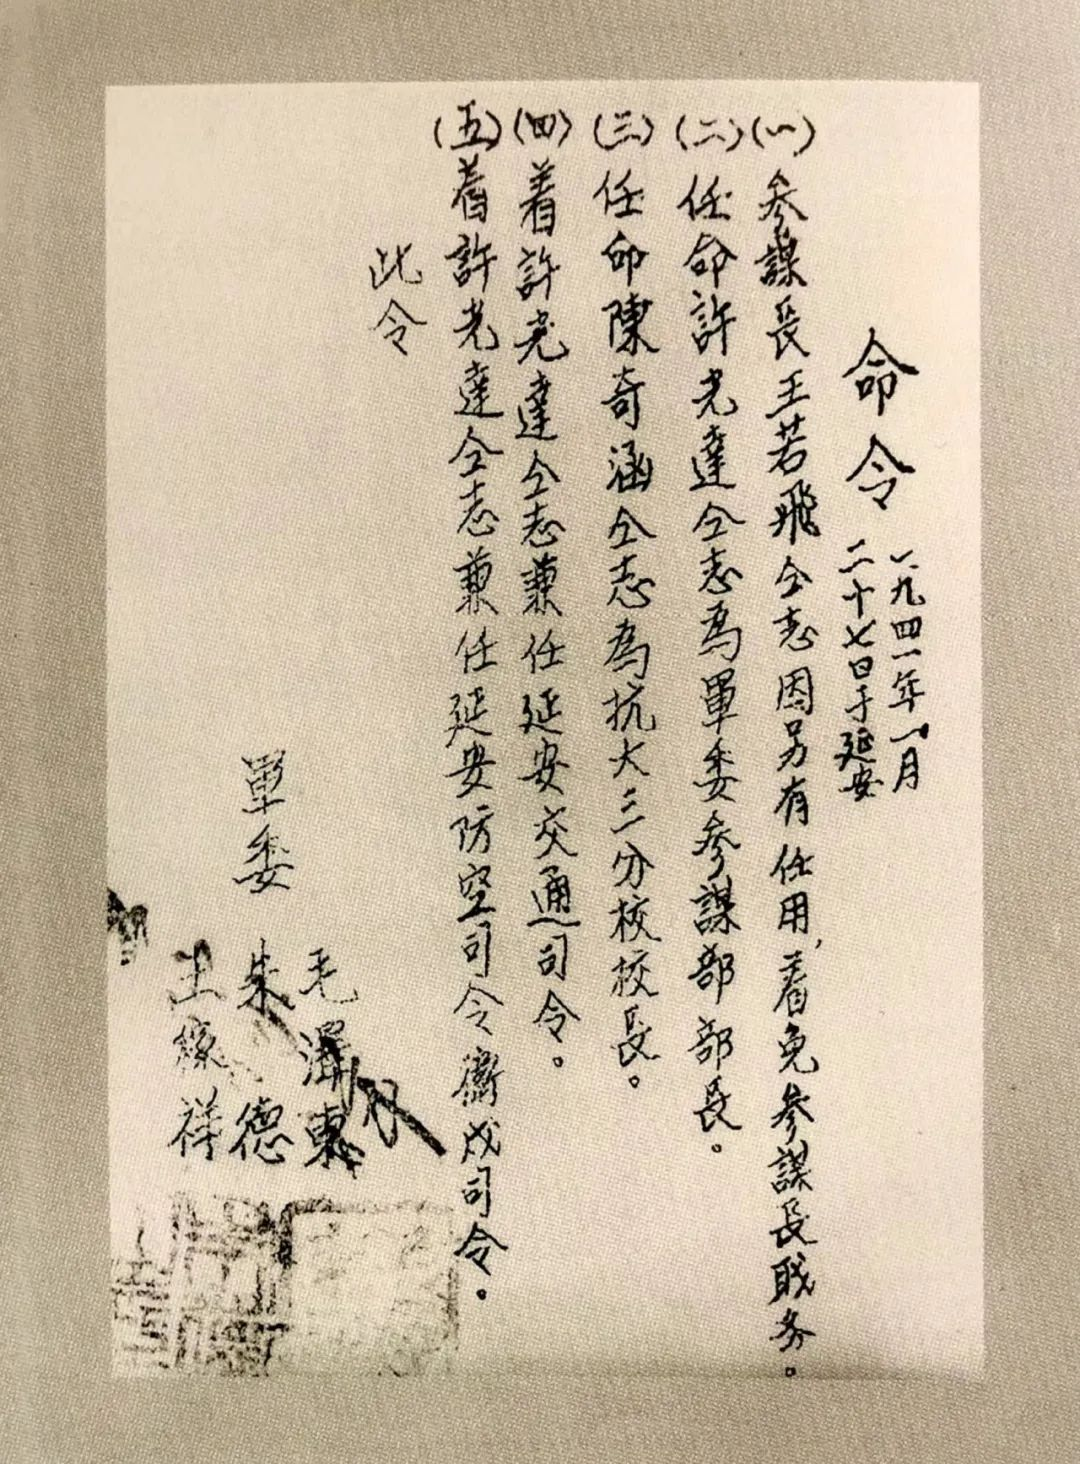 命令
一九四一年一月
二十七日于延安
(一)參謀長王若飛仝志因另有任用,着免參謀長戝务。
(二)任命許光達仝志為軍委參謀部部長。
(三)任命陳奇涵仝志為抗大三分校校長。
(四)着許光達仝志兼任延安交通司令。
(五)着許光達仝志兼任延安防空司令衞戍司令。
此令
軍委
毛澤東
朱德
王稼祥